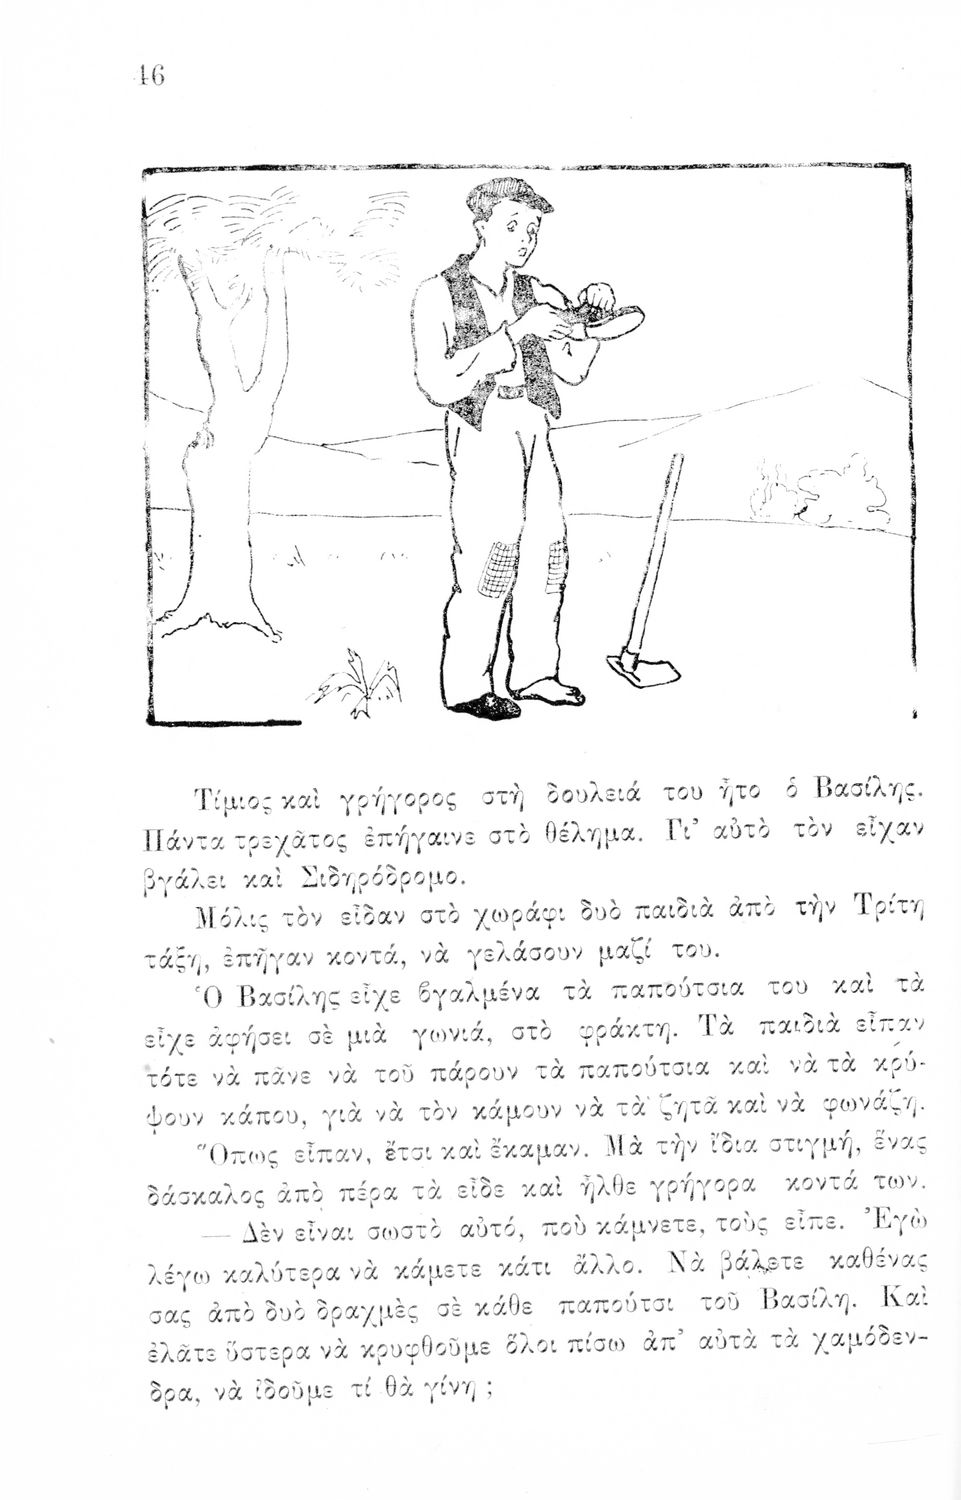 46
Τίμιος καὶ γρήγορος στὴ δουλειά του ἦτο ὁ Βασίλης.
Πάντα τρεχᾶτος ἐπήγαινε στὸ θέλημα. Γι’ αὐτὸ τὸν εἶχαν
βγάλει καὶ Σιδηρόδρομο.
Μόλις τὸν εἶδαν στὸ χωράφι δυὸ παιδιὰ ἀπὸ τὴν Τρίτη
τάξη, ἐπῆγαν κοντά, νὰ γελάσουν μαζί του.
Ὁ Βασίλης εἶχε βγαλμένα τὰ παπούτσια του καὶ τὰ
εἶχε ἀφήσει σὲ μιὰ γωνιά, στὸ φράκτη. Τὰ παιδιὰ εἶπαν
τότε νὰ πᾶνε νὰ τοῦ πάρουν τὰ παπούτσια καὶ νὰ τὰ κρύ-
ψουν κάπου, γιὰ νὰ τὸν κάμουν νὰ τὰ ζητᾶ καὶ νὰ φωνάζη.
Ὅπως εἶπαν, ἔτσι καὶ ἔκαμαν. Μὰ τὴν ἴδια στιγμή, ἕνας
δάσκαλος ἀπὸ πέρα τὰ εἶδε καὶ ἦλθε γρήγορα κοντά των.
— Δὲν εἶναι σωστὸ αὐτό, ποὺ κάμνετε, τοὺς εἶπε. Ἐγὼ
λέγω καλύτερα νὰ κάμετε κάτι ἄλλο. Νὰ βάλετε καθένας
σας ἀπὸ δυὸ δραχμὲς σὲ κάθε παπούτσι τοῦ Βασίλη. Καὶ
ἐλᾶτε ὕστερα νὰ κρυφθοῦμε ὅλοι πίσω ἀπ’ αὐτὰ τὰ χαμόδεν-
δρα, νὰ ἰδοῦμε τί θὰ γίνη ;